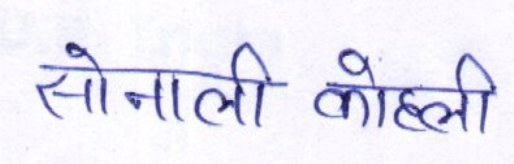 सोनाली कोहली